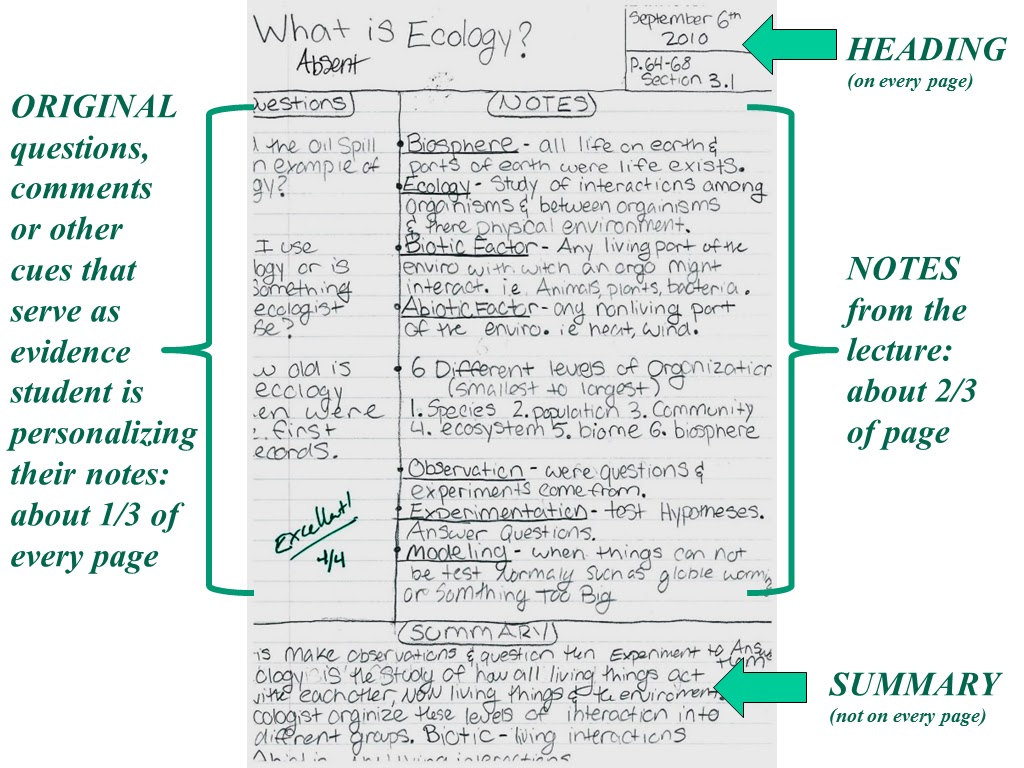 What is Ecology?
Absent
September 6th
2010
p.64-68
Section 3.1
HEADING
(on every page)
ORIGINAL
questions,
comments
or other
cues that
serve as
evidence
student is
personalizing
their notes:
about 1/3 of
every page
uestions
the Oil Spill
n example of
gy?
I use
logy or is
Something
ecologist
se?
w old is
ecology
en were
first
ecords.
Excellent!
4/4
NOTES
• Biosphere - all life on earth &
parts of earth were life exists.
• Ecology - Study of interactions among
organisms & between orgainisms
& there physical environment.
• Biotic Factor - Any living part of the
enviro with witch an orgo might
interact. ie. Animals, plants, bacteria.
• Abiotic Factor - any nonliving part
of the enviro. ie heat, wind.
• 6 Different levels of Organization
(smallest to largest)
1. Species 2. population 3. Community
4. ecosystem 5. biome 6. biosphere
• Observation - were questions &
experiments come from.
• Experimentation - test Hypotheses.
Answer Questions.
• Modeling - when things can not
be test normaly such as globle
or Somthing Too Big
NOTES
from the
lecture:
about 2/3
of page
SUMMARY
is Make observations & question then Experiment to Answ
them
ology is the Study of how all living things act
with eachother, How living things & the enviroment.
cologist orginize these levels of interaction into
different groups. Biotic - living interactions
SUMMARY
(not on every page)